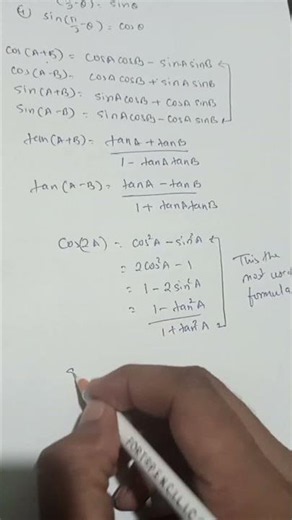 (π/2-θ) = sinθ
④ sin(π/2-θ) = cosθ
cos(A+B) = cosA cosB - sinA sinB
cos(A-B) = cosA cosB + sinA sinB
sin(A+B) = sinA cosB + cosA sinB
sin(A-B) = sinA cosB - cosA sinB
tan(A+B) = (tanA + tanB)/(1 - tanA tanB)
tan(A-B) = (tanA - tanB)/(1 + tanA tanB)
cos(2A) = cos²A - sin²A
= 2cos²A - 1
= 1 - 2sin²A
= (1 - tan²A)/(1 + tan²A)
This the
most
formula